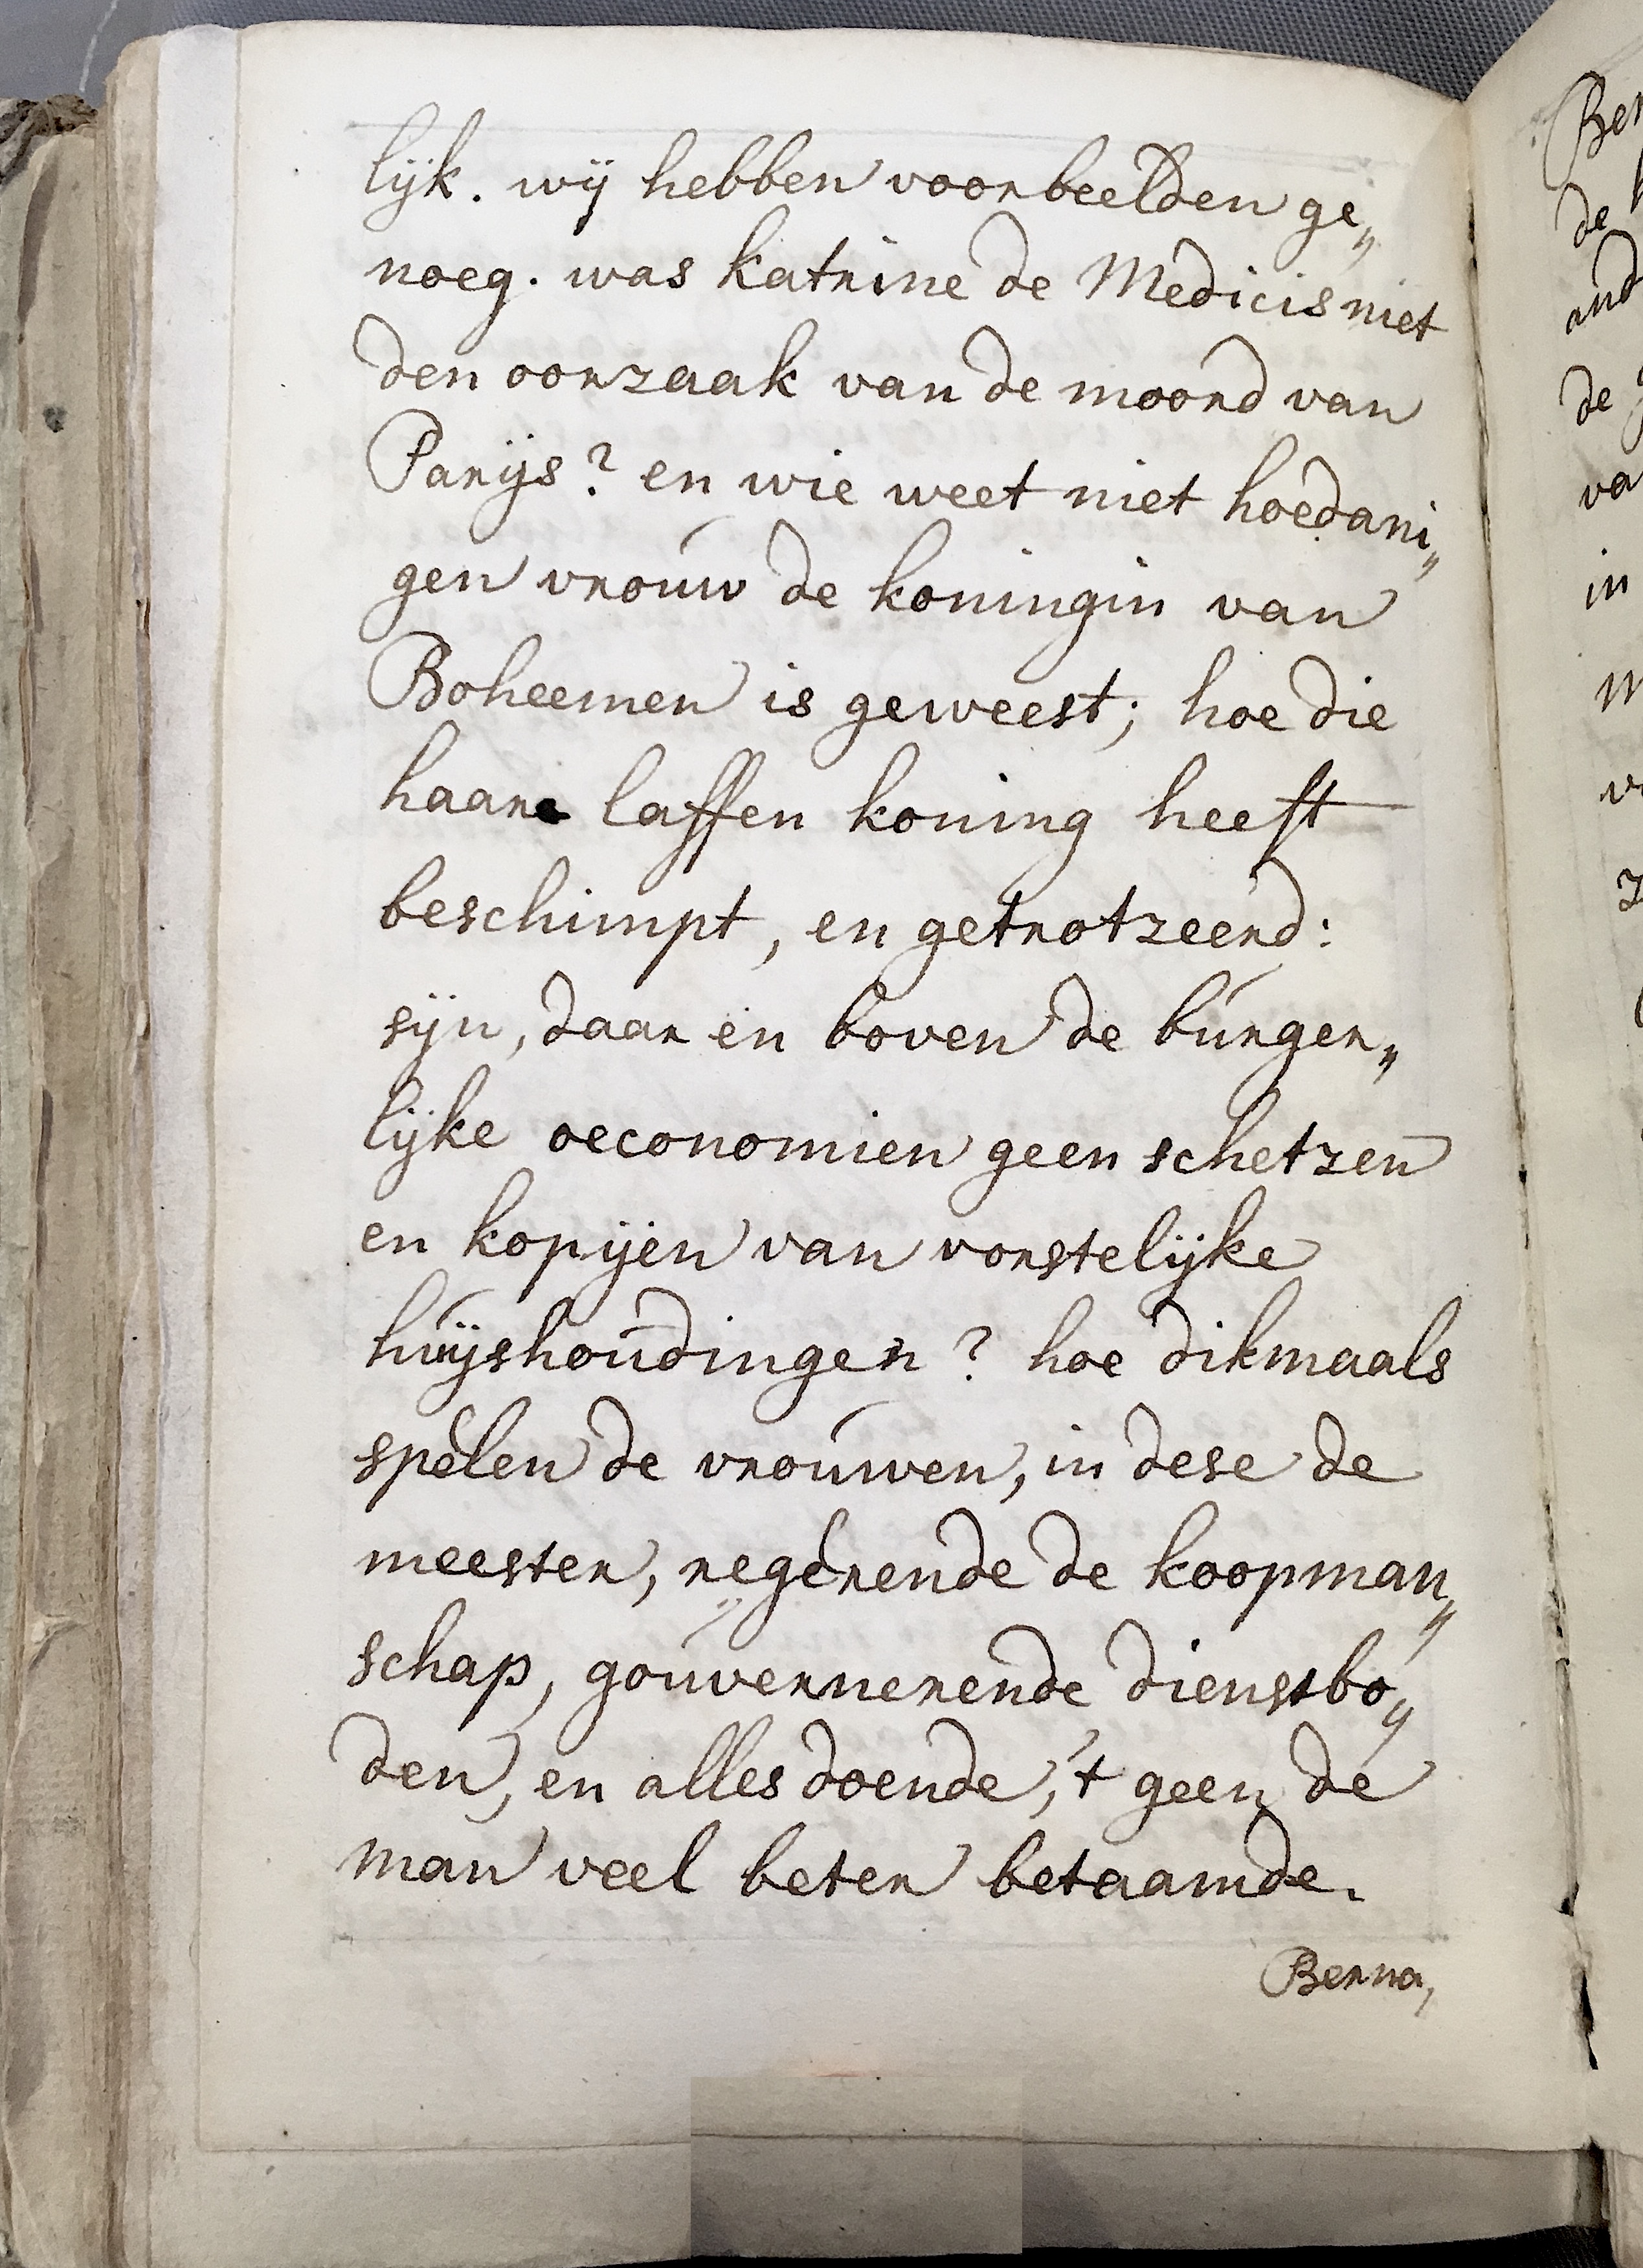 lijk. wij hebben voorbeelden ge„
noeg. was katrine de Medicis niet
den oorzaak van de moord van
Parijs? en wie weet niet hoedani„
gen vrouw de koningin van
Boheemen is geweest; hoe die
haare laffen koning heeft
beschimpt, en getrotzeerd:
sijn, daar en boven de burger„
lijke oeconomien geen schetzen
en kopijen van vorstelijke
huijshoudingen? hoe dikmaals
spélen de vrouwen, in dese de
meester, regérende de koopman„
schap, gouvernerende dienstbo„
den, en alles doende, 't geen de
man veel beter betaamde.
Berna,
Ber
de
and
de
va
in